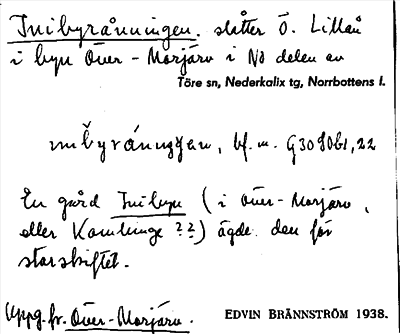 Inibyrånningen. slåtter Ö. Lillån
i byn Över-Morjärv i NÖ delen av
Töre sn, Nederkalix tg, Norrbottens l.
bf. m. G30 9061,22
En gård Inibyn (i Över-Morjärv,
eller Kamlunge ??) ägde den för
storskiftet.
Uppg. fr. Över-Morjärv.
EDVIN BRÄNNSTRÖM 1938.